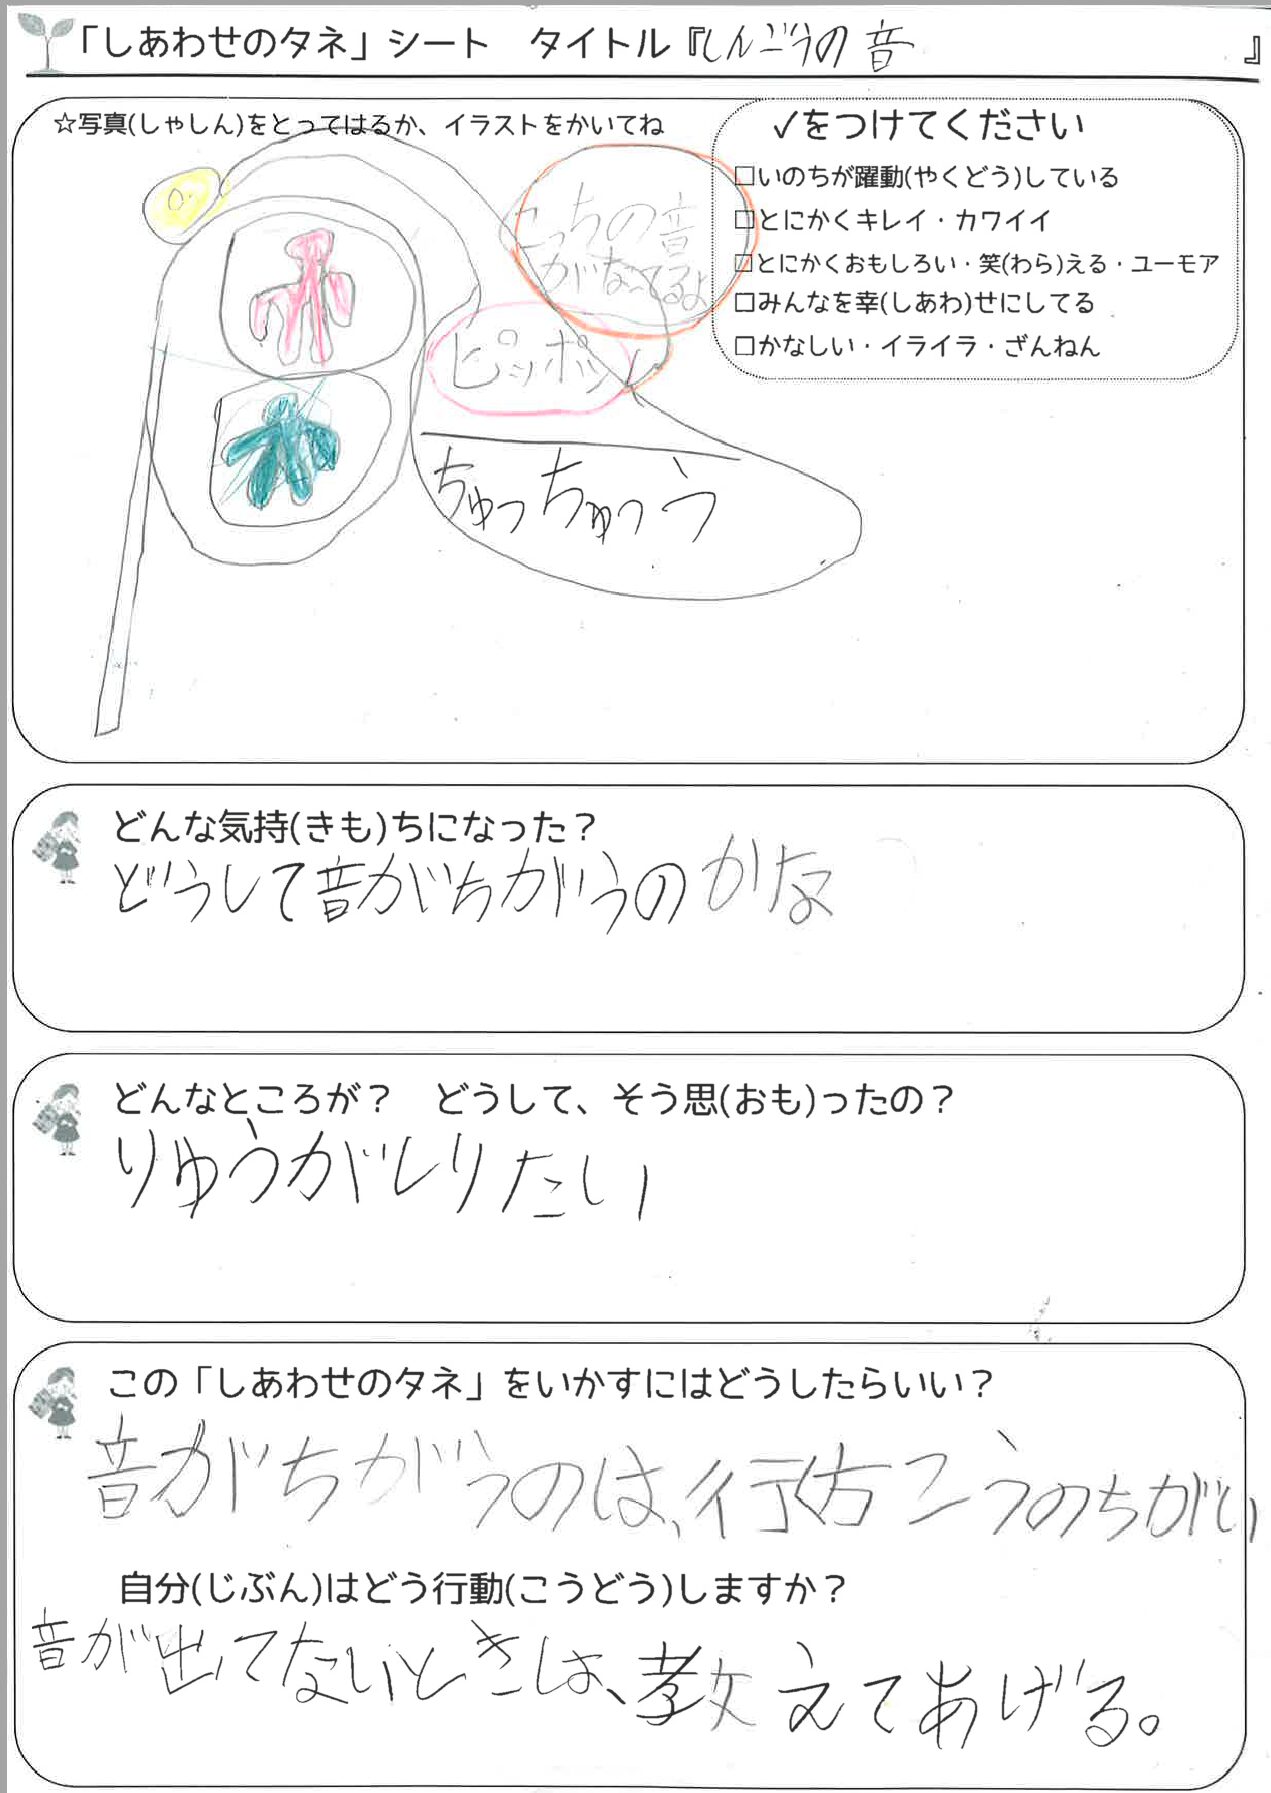 「しあわせのタネ」シート　タイトル『しんごうの音　』
☆写真(しゃしん)をとってはるか、イラストをかいてね
✓をつけてください
□いのちが躍動(やくどう)している
□とにかくキレイ・カワイイ
□とにかくおもしろい・笑(わら)える・ユーモア
□みんなを幸(しあわ)せにしてる
□かなしい・イライラ・ざんねん
こっちの音
がなってるよ
ピンポン
ちゅっちゅっう
どんな気持(きも)ちになった？
どうして音がちがうのかな
どんなところが？　どうして、そう思(おも)ったの？
りゆうがしりたい
この「しあわせのタネ」をいかすにはどうしたらいい？
音がちがうのは、行く方こうのちがい
自分(じぶん)はどう行動(こうどう)しますか？
音が出てないときは、教えてあげる。